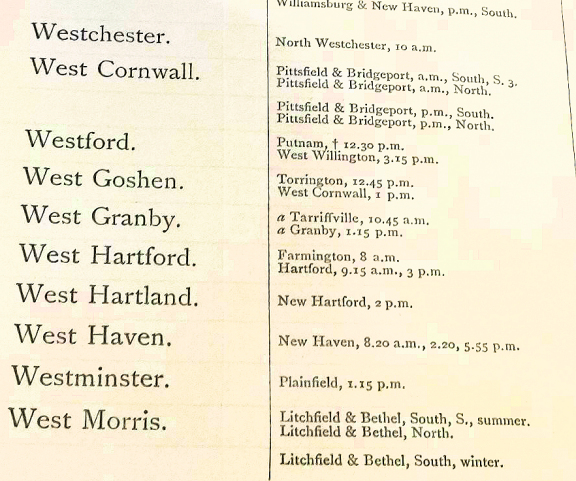 Williamsburg & New Haven, p.m., South.
Westchester.
North Westchester, 10 a.m.
West Cornwall.
Pittsfield & Bridgeport, a.m., South, S. 3.
Pittsfield & Bridgeport, a.m., North.
Pittsfield & Bridgeport, p.m., South.
Pittsfield & Bridgeport, p.m., North.
Westford.
Putnam, † 12.30 p.m.
West Willington, 3.15 p.m.
West Goshen.
Torrington, 12.45 p.m.
West Cornwall, 1 p.m.
West Granby.
a Tarriffville, 10.45 a.m.
a Granby, 1.15 p.m.
West Hartford.
Farmington, 8 a.m.
Hartford, 9.15 a.m., 3 p.m.
West Hartland.
New Hartford, 2 p.m.
West Haven.
New Haven, 8.20 a.m., 2.20, 5.55 p.m.
Westminster.
Plainfield, 1.15 p.m.
West Morris.
Litchfield & Bethel, South, S., summer.
Litchfield & Bethel, North.
Litchfield & Bethel, South, winter.